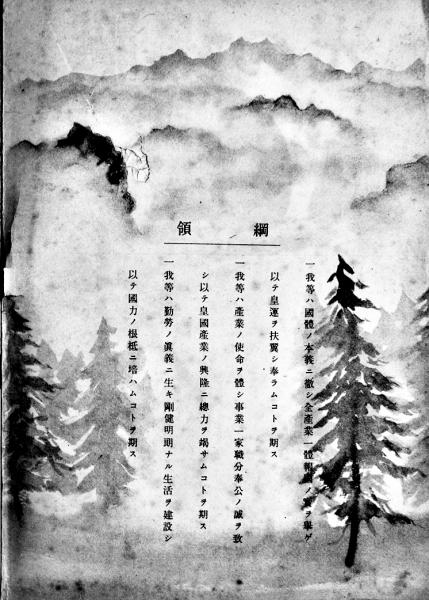 綱領
一我等ハ國體ノ本義ニ徹シ全產業一體報國ノ實ヲ擧ゲ
以テ皇運ヲ扶翼シ奉ラムコトヲ期ス
一我等ハ產業ノ使命ヲ體シ事業一家職分奉公ノ誠ヲ致
シ以テ皇國產業ノ興隆ニ總力ヲ竭サムコトヲ期ス
一我等ハ勤勞ノ眞義ニ生キ剛健明朗ナル生活ヲ建設シ
以テ國力ノ根柢ニ培ハムコトヲ期ス